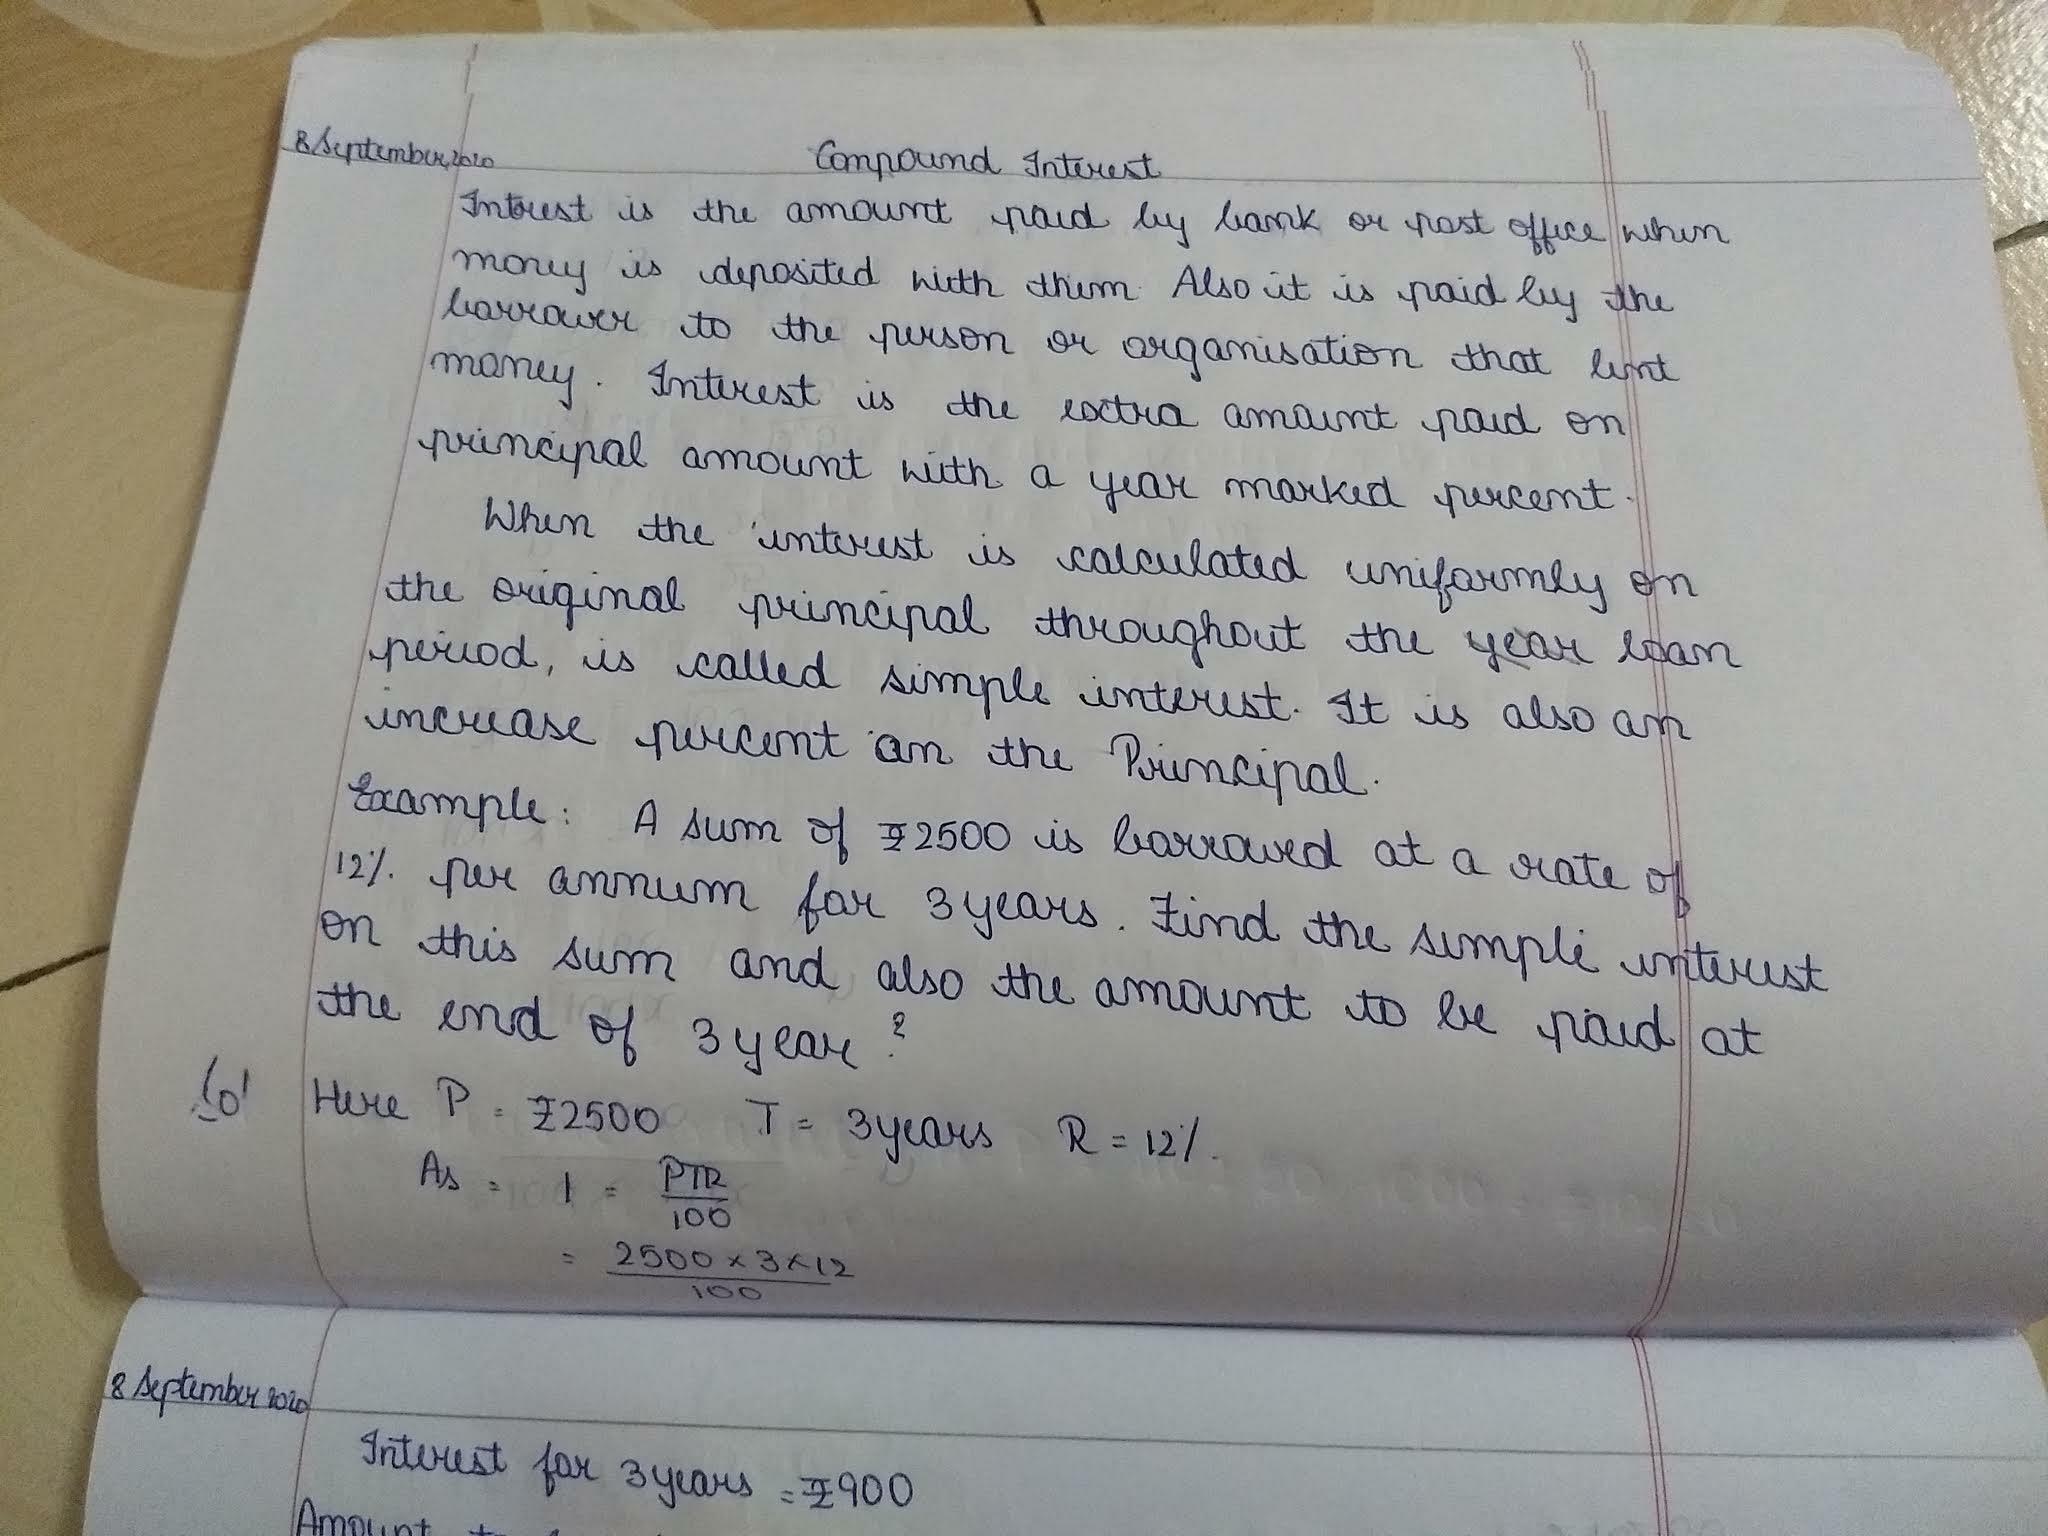 8 September, 2020
Compound Interest
Interest is the amount paid by bank or post office when
money is deposited with them. Also it is paid by the
borrower to the person or organisation that lent
money. Interest is the extra amount paid on
principal amount with a year marked percent.
When the interest is calculated uniformly on
the original principal throughout the year loan
period, is called simple interest. It is also an
increase percent on the Principal.
Example: A sum of ₹2500 is borrowed at a rate of
12% per annum for 3 years. Find the simple interest
on this sum and also the amount to be paid at
the end of 3 year?
Sol Here P = ₹2500 T = 3 years R = 12%.
As = 1 = PTR
100
= 2500 × 3 × 12
100
8 September 2020
Interest for 3 years = ₹900
Amount